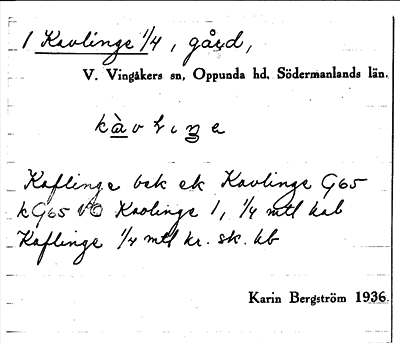 1 Kavlinge 1/4, gård,
V. Vingåkers sn, Oppunda hd, Södermanlands län.
Kaflinge bek ek Kavlinge G65
kG65 Kavlinge 1, 1/4 mtl
Kaflinge 1/4 mtl kr. sk. hb
Karin Bergström 1936.